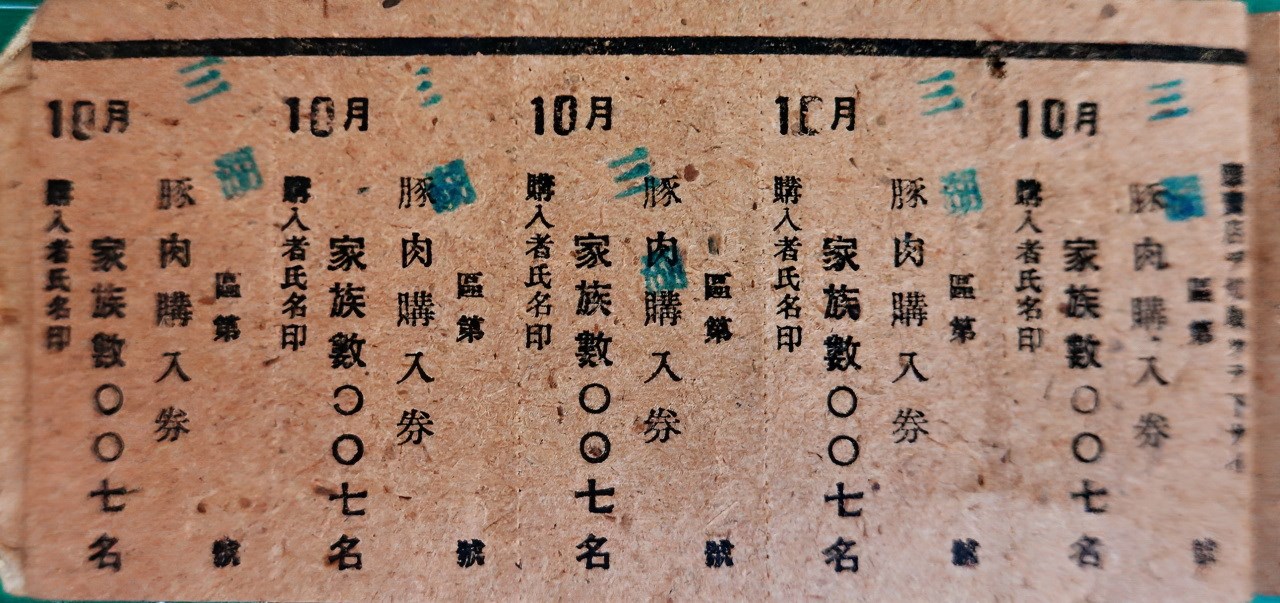 區第 號
三
豚肉購入券
家族數〇〇七名
購入者氏名印
10月
區第 號
三
豚肉購入券
家族數〇〇七名
購入者氏名印
10月
區第 號
三
豚肉購入券
家族數〇〇七名
購入者氏名印
10月
區第 號
三
豚肉購入券
家族數〇〇七名
購入者氏名印
10月
區第 號
三
豚肉購入券
家族數〇〇七名
購入者氏名印
10月